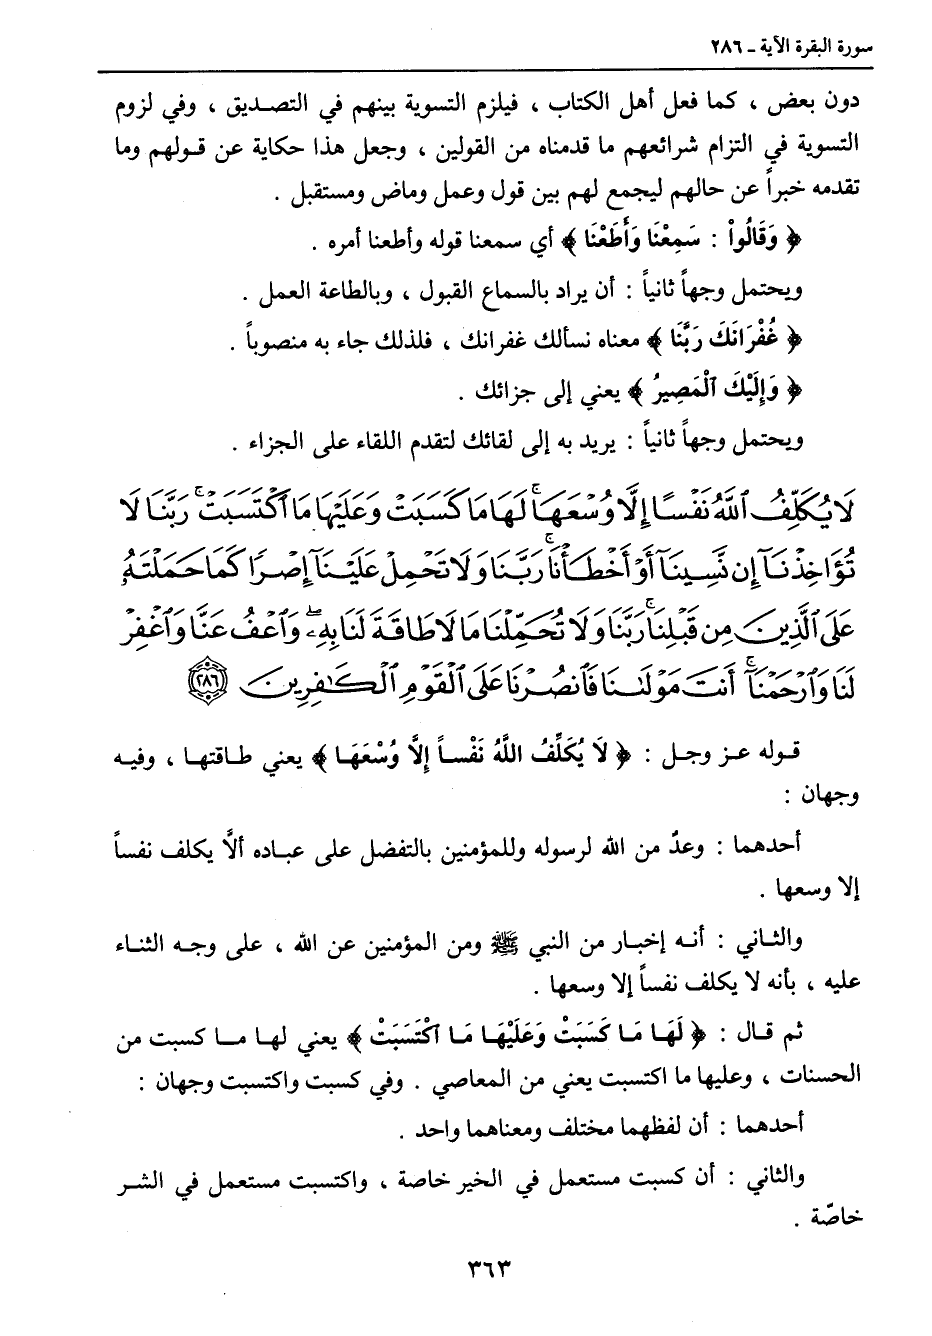 سورة البقرة الآية ـ ٢٨٦
دون بعض ، كما فعل أهل الكتاب ، فيلزم التسوية بينهم في التصديق ، وفي لزوم
التسوية في التزام شرائعهم ما قدمناه من القولين ، وجعل هذا حكاية عن قولهم وما
تقدمه خبراً عن حالهم ليجمع لهم بين قول وعمل وماض ومستقبل .
﴿ وَقَالُواْ : سَمِعْنَا وَأَطَعْنَا ﴾ أي سمعنا قوله وأطعنا أمره .
ويحتمل وجهاً ثانياً : أن يراد بالسماع القبول ، وبالطاعة العمل .
﴿ غُفْرَانَكَ رَبَّنَا ﴾ معناه نسألك غفرانك ، فلذلك جاء به منصوباً .
﴿ وَإِلَيْكَ ٱلْمَصِيرُ ﴾ يعني إلى جزائك .
ويحتمل وجهاً ثانياً : يريد به إلى لقائك لتقدم اللقاء على الجزاء .
لَا يُكَلِّفُ ٱللَّهُ نَفْسًا إِلَّا وُسْعَهَا ۚ لَهَا مَا كَسَبَتْ وَعَلَيْهَا مَا ٱكْتَسَبَتْ ۗ رَبَّنَا لَا
تُؤَاخِذْنَآ إِن نَّسِينَآ أَوْ أَخْطَأْنَا ۚ رَبَّنَا وَلَا تَحْمِلْ عَلَيْنَآ إِصْرًا كَمَا حَمَلْتَهُۥ
عَلَى ٱلَّذِينَ مِن قَبْلِنَا ۚ رَبَّنَا وَلَا تُحَمِّلْنَا مَا لَا طَاقَةَ لَنَا بِهِۦ ۖ وَٱعْفُ عَنَّا وَٱغْفِرْ
لَنَا وَٱرْحَمْنَآ ۚ أَنتَ مَوْلَىٰنَا فَٱنصُرْنَا عَلَى ٱلْقَوْمِ ٱلْكَٰفِرِينَ ٢٨٦
قوله عز وجل : ﴿ لَا يُكَلِّفُ اللَّهُ نَفْساً إِلَّا وُسْعَهَا ﴾ يعني طاقتها ، وفيه
وجهان :
أحدهما : وعدٌ من الله لرسوله وللمؤمنين بالتفضل على عباده ألاَّ يكلف نفساً
إلا وسعها .
والثاني : أنه إخبار من النبي ﷺ ومن المؤمنين عن الله ، على وجه الثناء
عليه ، بأنه لا يكلف نفساً إلا وسعها .
ثم قال : ﴿ لَهَا مَا كَسَبَتْ وَعَلَيْهَا مَا ٱكْتَسَبَتْ ﴾ يعني لها ما كسبت من
الحسنات ، وعليها ما اكتسبت يعني من المعاصي . وفي كسبت واكتسبت وجهان :
أحدهما : أن لفظهما مختلف ومعناهما واحد .
والثاني : أن كسبت مستعمل في الخير خاصة ، واكتسبت مستعمل في الشر
خاصّة .
٣٦٣